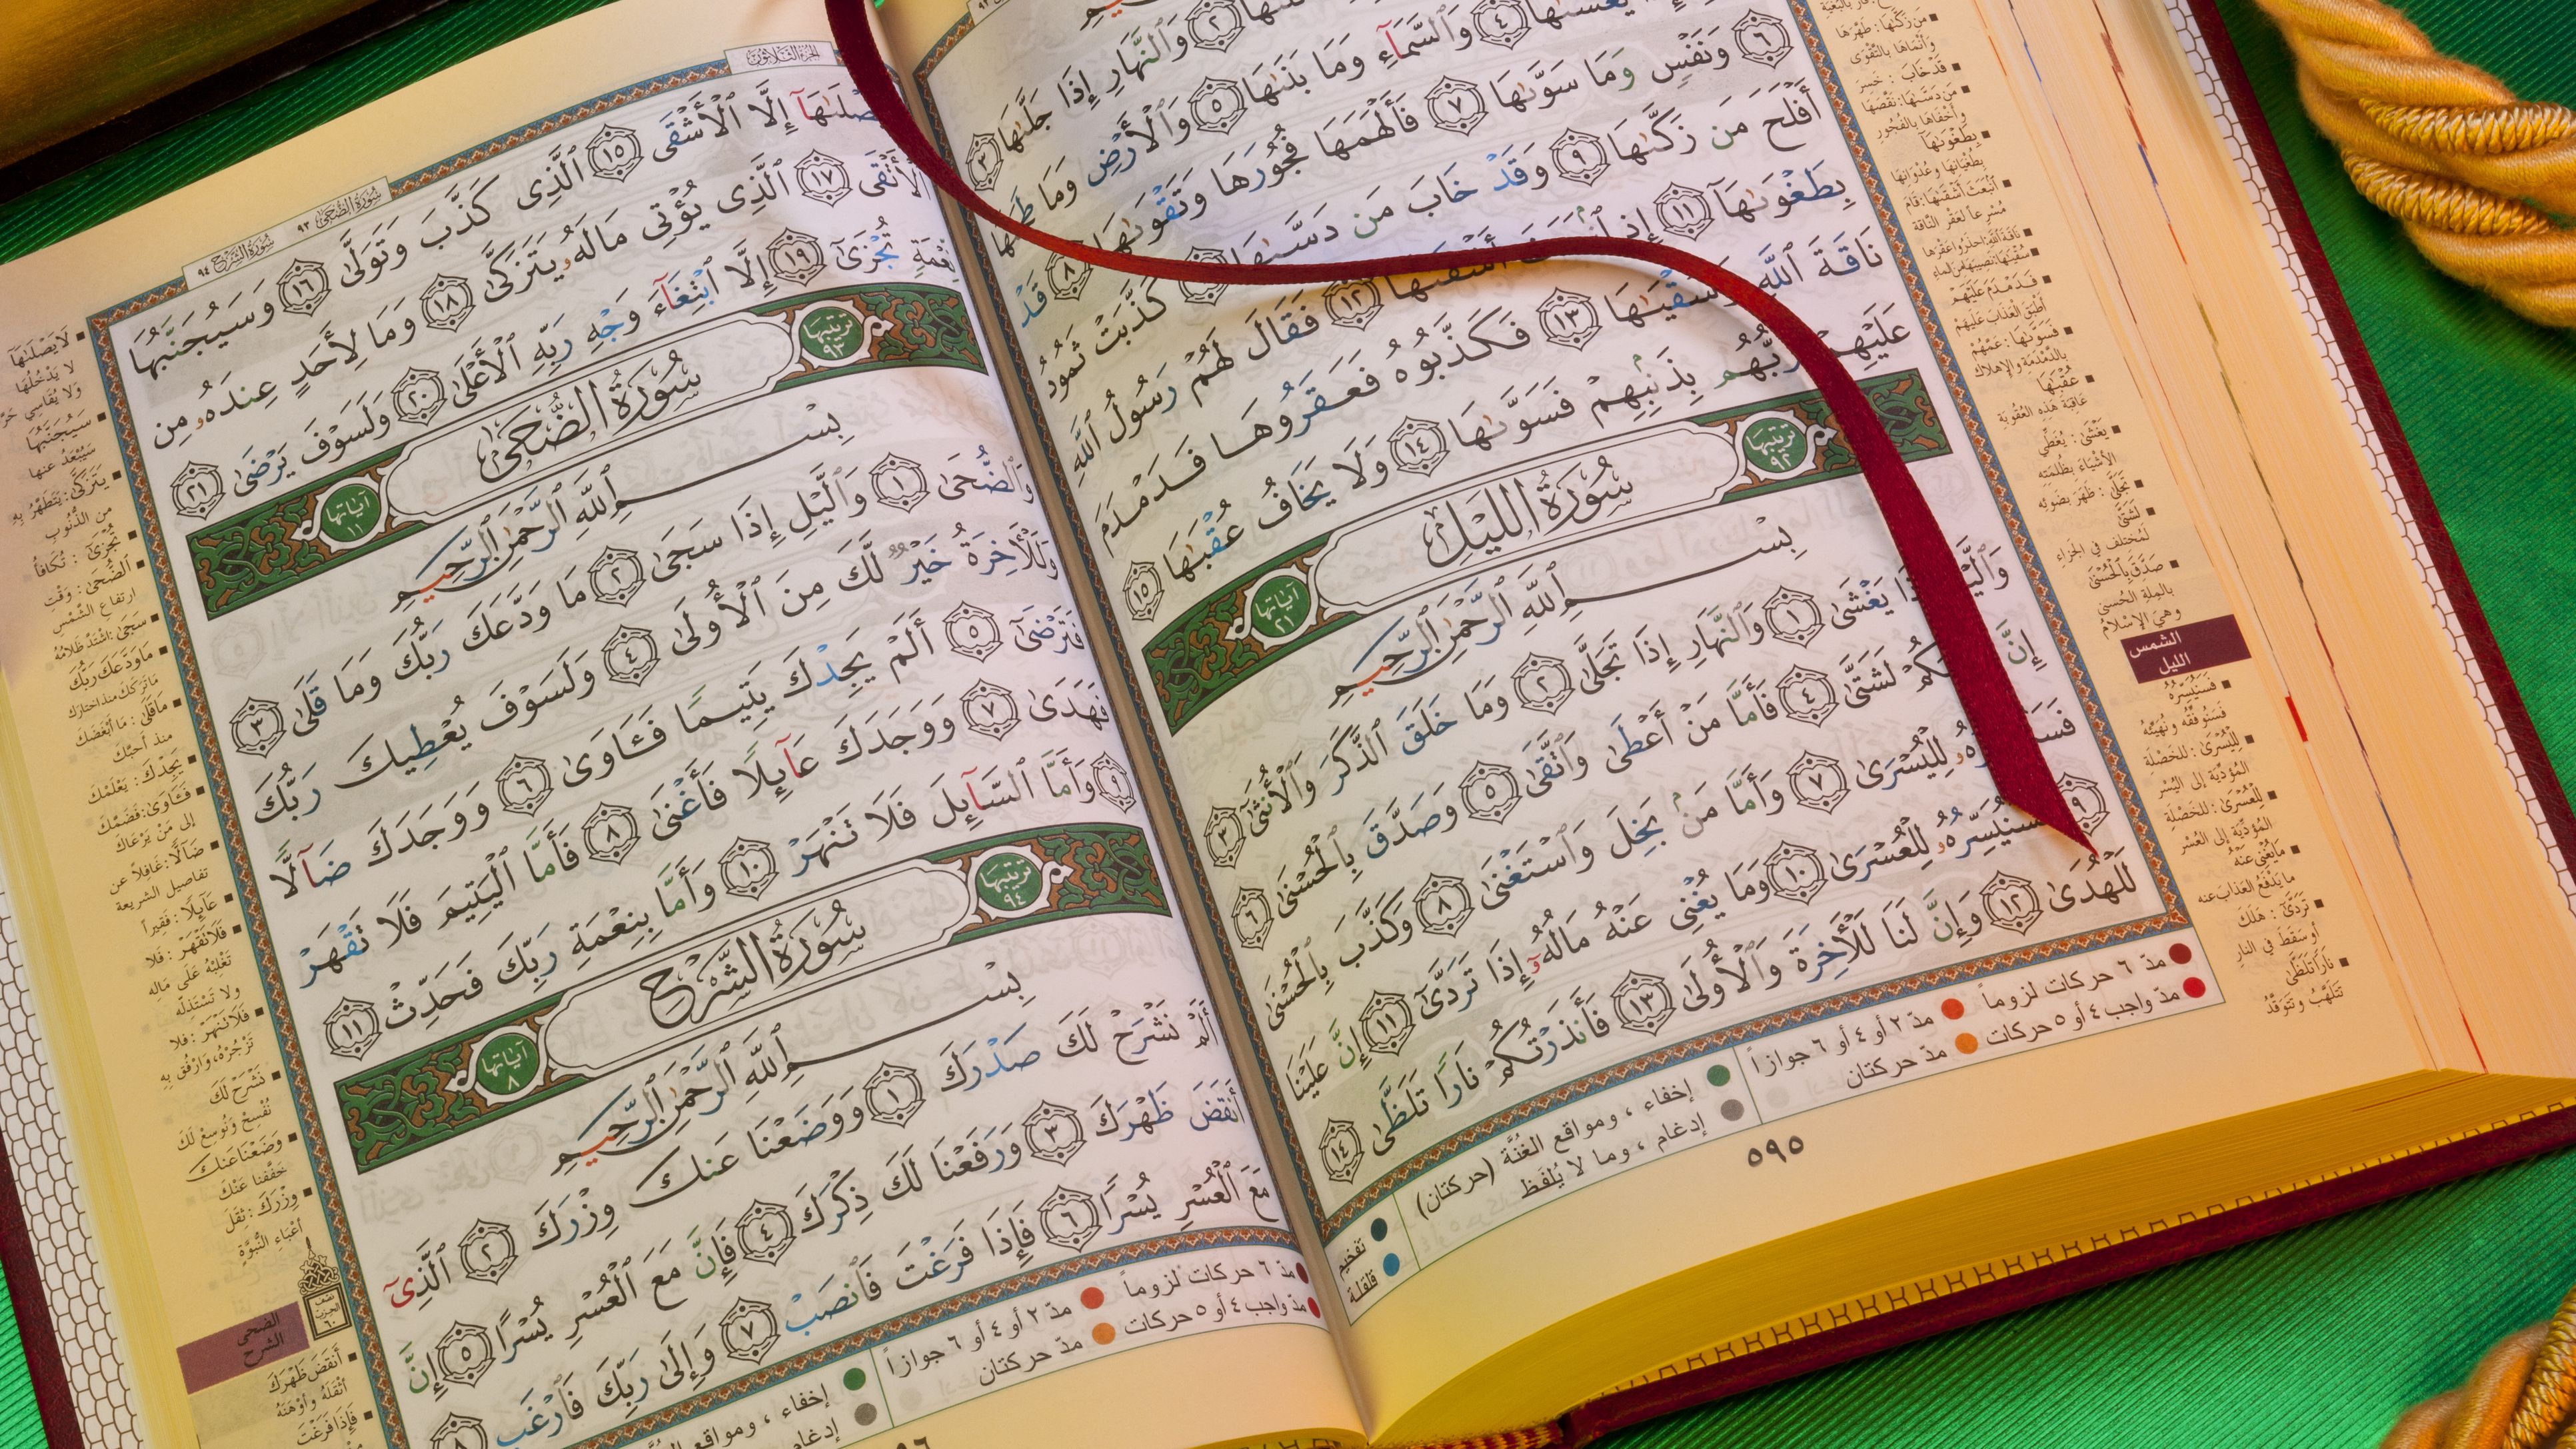 وَٱلنَّهَارِ إِذَا جَلَّىٰهَا ٣
وَٱلسَّمَآءِ وَمَا بَنَىٰهَا ٥ وَٱلْأَرْضِ وَمَا طَحَىٰهَا
٦ وَنَفْسٍ وَمَا سَوَّىٰهَا ٧ فَأَلْهَمَهَا فُجُورَهَا وَتَقْوَىٰهَا ٨ قَدْ
أَفْلَحَ مَن زَكَّىٰهَا ٩ وَقَدْ خَابَ مَن دَسَّىٰهَا كَذَّبَتْ ثَمُودُ
بِطَغْوَىٰهَآ ١١ إِذِ أَشْقَىٰهَا ١٢ فَقَالَ لَهُمْ رَسُولُ ٱللَّهِ
نَاقَةَ ٱللَّهِ وَسُقْيَـٰهَا ١٣ فَكَذَّبُوهُ فَعَقَرُوهَا فَدَمْدَمَ
عَلَيْهِمْ رَبُّهُم بِذَنۢبِهِمْ فَسَوَّىٰهَا ١٤ وَلَا يَخَافُ عُقْبَـٰهَا ١٥
ترتيبها ٩٢ سُورَةُ اللَّيْلِ آياتها ٢١
بِسْمِ ٱللَّهِ ٱلرَّحْمَـٰنِ ٱلرَّحِيمِ
يَغْشَىٰ ١ وَٱلنَّهَارِ إِذَا تَجَلَّىٰ ٢ وَمَا خَلَقَ ٱلذَّكَرَ وَٱلْأُنثَىٰٓ ٣
إِنَّ لَشَتَّىٰ ٤ فَأَمَّا مَنْ أَعْطَىٰ وَٱتَّقَىٰ ٥ وَصَدَّقَ بِٱلْحُسْنَىٰ ٦
لِلْيُسْرَىٰ ٧ وَأَمَّا مَنۢ بَخِلَ وَٱسْتَغْنَىٰ ٨ وَكَذَّبَ بِٱلْحُسْنَىٰ
٩ فَسَنُيَسِّرُهُۥ لِلْعُسْرَىٰ ١٠ وَمَا يُغْنِى عَنْهُ مَالُهُۥٓ إِذَا تَرَدَّىٰٓ ١١ إِنَّ عَلَيْنَا
لَلْهُدَىٰ ١٢ وَإِنَّ لَنَا لَلْـَٔاخِرَةَ وَٱلْأُولَىٰ ١٣ فَأَنذَرْتُكُمْ نَارًا تَلَظَّىٰ ١٤
مدّ ٦ حركات لزوماً مدّ ٢ أو ٤ أو ٦ جوازاً إخفاء ، ومواقع الغُنَّة (حركتان) تفخيم
مدّ واجب ٤ أو ٥ حركات مدّ حركتان إدغام ، وما لا يُلفَظ قلقلة
٥٩٥
وأنماها بالتقوى
قَدْ خَابَ : خسر
مَن دَسَّىٰهَا : نقصها
وأخفاها بالفجور
بِطَغْوَىٰهَآ
بطغيانها وعدوانها
مسرعاً لعقر الناقة
فَدَمْدَمَ عَلَيْهِمْ
أطبق العذاب عليهم
فَسَوَّىٰهَا : عمّهم
بالدمدمة والإهلاك
عُقْبَـٰهَا
عاقبة هذه العقوبة
يَغْشَىٰ : يغطي
الأشياء بظلمته
تَجَلَّىٰ : ظهر بضوئه
لَشَتَّىٰ
لمختلف في الجزاء
صَدَّقَ بِٱلْحُسْنَىٰ
بالملة الحسنى
وهي الإسلام
الشمس
الليل
فَسَنُيَسِّرُهُۥ
فسنوفقه ونهيئه
لِلْيُسْرَىٰ : للخصلة
المؤدية إلى اليسر
لِلْعُسْرَىٰ : للخصلة
المؤدية إلى العسر
مَا يُغْنِى عَنْهُ
ما يدفع العذاب عنه
تَرَدَّىٰٓ : هلك
أو سقط في النار
نَارًا تَلَظَّىٰ
تتلهب وتتوقد
الجزء الثلاثون
سُورَةُ الضُّحَىٰ ٩٣ سُورَةُ الشَّرْحِ ٩٤
يَصْلَىٰهَآ إِلَّا ٱلْأَشْقَى ١٥ ٱلَّذِى كَذَّبَ وَتَوَلَّىٰ ١٦ وَسَيُجَنَّبُهَا
ٱلْأَتْقَى ١٧ ٱلَّذِى يُؤْتِى مَالَهُۥ يَتَزَكَّىٰ ١٨ وَمَا لِأَحَدٍ عِندَهُۥ مِن
نِّعْمَةٍ تُجْزَىٰٓ ١٩ إِلَّا ٱبْتِغَآءَ وَجْهِ رَبِّهِ ٱلْأَعْلَىٰ ٢٠ وَلَسَوْفَ يَرْضَىٰ ٢١
ترتيبها ٩٣ سُورَةُ الضُّحَىٰ آياتها ١١
بِسْمِ ٱللَّهِ ٱلرَّحْمَـٰنِ ٱلرَّحِيمِ
وَٱلضُّحَىٰ ١ وَٱلَّيْلِ إِذَا سَجَىٰ ٢ مَا وَدَّعَكَ رَبُّكَ وَمَا قَلَىٰ ٣
وَلَلْـَٔاخِرَةُ خَيْرٌ لَّكَ مِنَ ٱلْأُولَىٰ ٤ وَلَسَوْفَ يُعْطِيكَ رَبُّكَ
فَتَرْضَىٰٓ ٥ أَلَمْ يَجِدْكَ يَتِيمًا فَـَٔاوَىٰ ٦ وَوَجَدَكَ ضَآلًّا
فَهَدَىٰ ٧ وَوَجَدَكَ عَآئِلًا فَأَغْنَىٰ ٨ فَأَمَّا ٱلْيَتِيمَ فَلَا تَقْهَرْ
٩ وَأَمَّا ٱلسَّآئِلَ فَلَا تَنْهَرْ ١٠ وَأَمَّا بِنِعْمَةِ رَبِّكَ فَحَدِّثْ ١١
ترتيبها ٩٤ سُورَةُ الشَّرْحِ آياتها ٨
بِسْمِ ٱللَّهِ ٱلرَّحْمَـٰنِ ٱلرَّحِيمِ
أَلَمْ نَشْرَحْ لَكَ صَدْرَكَ ١ وَوَضَعْنَا عَنكَ وِزْرَكَ ٢ ٱلَّذِىٓ
أَنقَضَ ظَهْرَكَ ٣ وَرَفَعْنَا لَكَ ذِكْرَكَ ٤ فَإِنَّ مَعَ ٱلْعُسْرِ يُسْرًا ٥ إِنَّ
مَعَ ٱلْعُسْرِ يُسْرًا ٦ فَإِذَا فَرَغْتَ فَٱنصَبْ ٧ وَإِلَىٰ رَبِّكَ فَٱرْغَب ٨
مدّ ٦ حركات لزوماً مدّ ٢ أو ٤ أو ٦ جوازاً إخفاء ، ومواقع
مدّ واجب ٤ أو ٥ حركات مدّ حركتان إدغام
لَا يَصْلَىٰهَآ
لا يدخلها
ولا يقاسي
سَيُجَنَّبُهَا
سيبعد عنها
يَتَزَكَّىٰ : يتطهر به
من الذنوب
تُجْزَىٰٓ : تكافأ
ٱلضُّحَىٰ : وقت
ارتفاع الشمس
سَجَىٰ : اشتد ظلامه
مَا وَدَّعَكَ رَبُّكَ
ما تركك منذ اختارك
مَا قَلَىٰ : ما أبغضك
منذ أحبك
يَجِدْكَ : يعلمك
فَـَٔاوَىٰ : فضمك
إلى من يرعاك
ضَآلًّا : غافلاً عن
تفاصيل الشريعة
عَآئِلًا : فقيراً
فَلَا تَقْهَرْ : فلا
تغلبه على ماله
ولا تستذله
فَلَا تَنْهَرْ : فلا
تزجره، وارفق به
نَشْرَحْ لَكَ
نفسح ونوسع لك
وَضَعْنَا عَنكَ
خففنا عنك
وِزْرَكَ : ثقل
أعباء النبوة
نصف الحزب ٦٠
الضحى
الشرح
أَنقَضَ ظَهْرَكَ
أثقله وأوهنه
فَإِذَا فَرَغْتَ